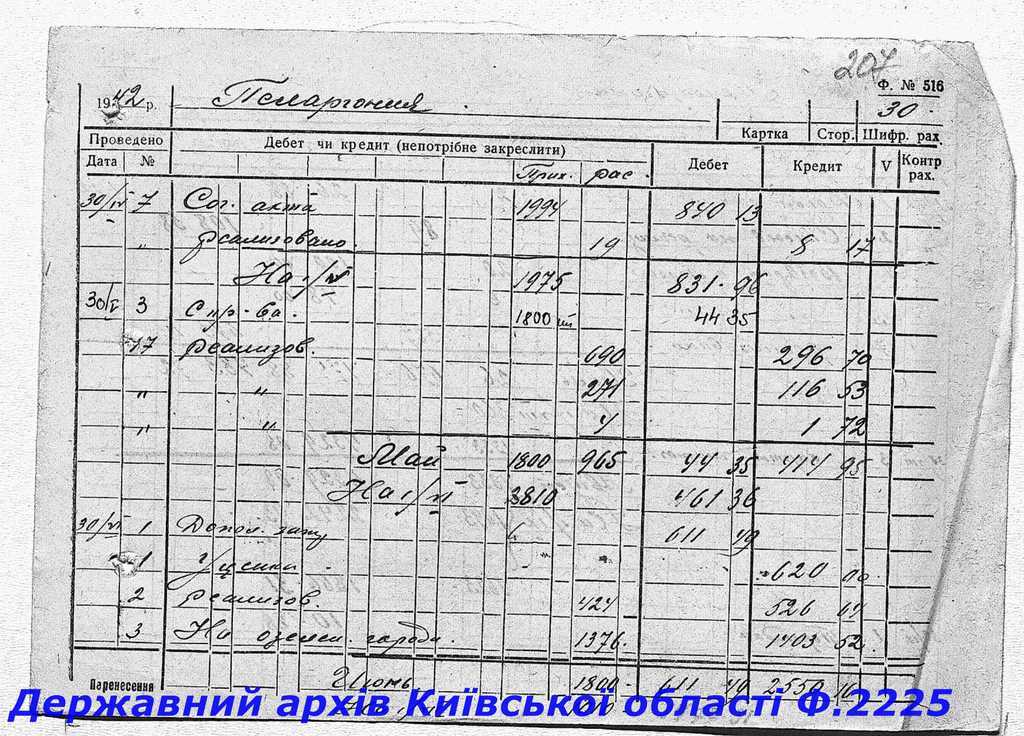 207
Ф. № 516
1942 р. Пеларгония 30
Картка Стор. Шифр. рах
Проведено Дебет чи кредит (непотрібне закреслити) Дебет Кредит V Контр рах.
Дата № Прих. рас.
30/IV 7 Сог. акта 1994 840 13
" реализовано 19 8 17
На 1/V 1975 831 96
30/V 3 1800 шт 44 35
17 реализов. 690 296 70
" " 271 116 53
" " 4 1 72
Май 1800 965 44 35 414 95
На 1/VI 2810 461 36
30/VI 1 611 49
1 Уценки 620 00
2 реализов. 424 526 64
3 На озелен. города. 1376 1403 52
Паренесення Июнь 1800 611 49 2550 16
Державний архів Київської області Ф.2225